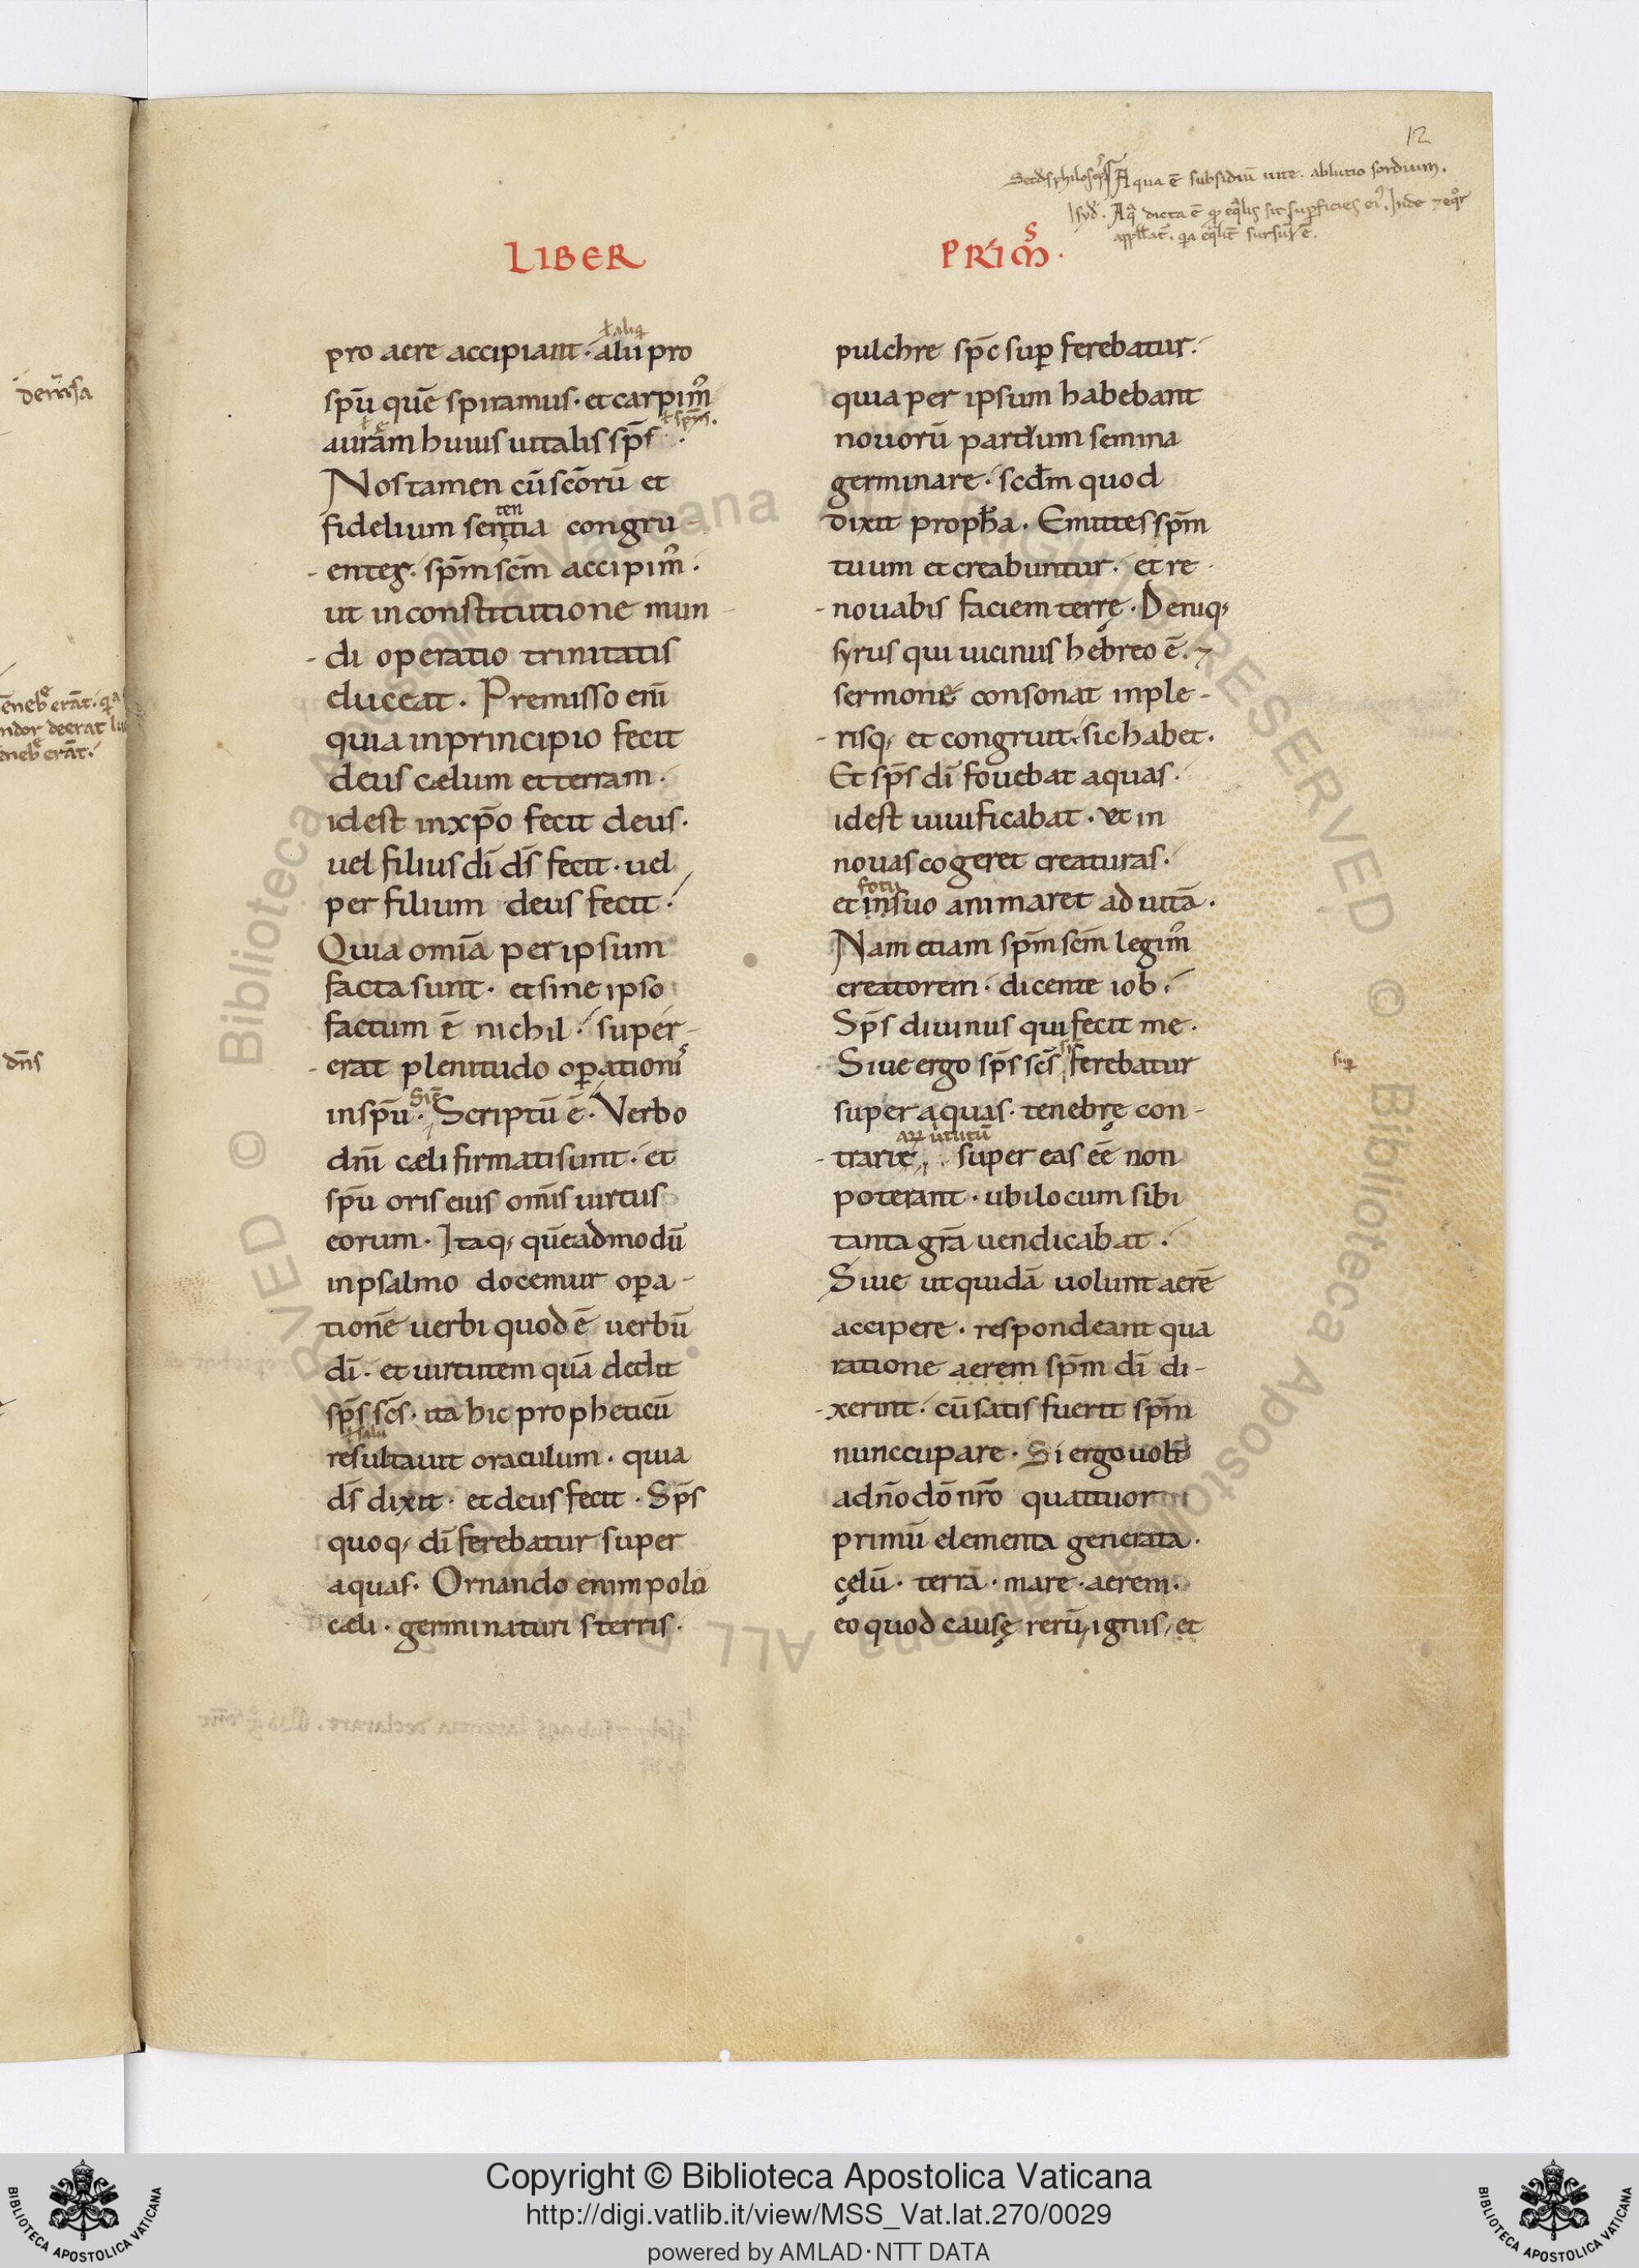 12
Aqua ē subsidiū uite. ablutio sordium.
LIBER
PRIM̄S.
ł aliq
pro aere accipiant· alii pro
spū quē spiramus· et carpim᷒
ł spm̄.
auram huius uitalis sps̄·
Nos tamen cū sc̄orū et
ten
fidelium sentia congru-
-entes· spm̄ scm̄ accipim᷒·
ut inconstitutione mun-
-di operatio trinitatis
eluceat. Premisso eni
quia inprincipio fecit
deus cælum et terram·
idest inxp̄o fecit deus·
uel filius dī ds̄ fecit· uel
per filium deus fecit·
Quia omīa per ipsum
facta sunt· et sine ipso
factum ē nichil· super-
-erat plenitudo oꝑationis
Sic̄
inspū· Scriptū ē· Verbo
dnī cæli firmati sunt· et
spū oris eius omīs uirtus
eorum· Itaq; quēadmodū
inpsalmo docemur oꝑa-
tionē uerbi quod ē uerbū
dī· et uirtutem quā dedit
sps̄ scs̄· ita hic propheticū
ł salu
resultauit oraculum· quia
ds̄ dixit· et deus fecit· Sps̄
quoq; dī ferebatur super
aquas· Ornando enim polo
cæli· germinaturis terris·
pulchre spc̄ suꝑ ferebatur·
quia per ipsum habebant
nouorū partuum semina
germinare· scdm̄ quod
dixit proph̄a· Emittes spm̄
tuum et creabuntur· et re
-nouabis faciem terrę· Deniq;
syrus qui uicinus hebreo ē· ⁊
sermone consonat inple-
-risq; et congruit· sic habet·
Et sps̄ dī fouebat aquas·
idest uiuificabat· ut in
nouas cogeret creaturas·
fotu
et insuo animaret ad uitā·
Nam etiam spm̄ scm̄ legim᷒
creatorem· dicente iob·
Sps̄ diuinus qui fecit me·
Siue ergo sps̄ scs̄ ferebatur
suꝑ
super aquas· tenebrę con-
uirtutū
-trarię super eas eē non
poterant· ubi locum sibi
tanta grā uendicabat·
Siue ut quidā uolunt aerē
accipere· respondeant qua
ratione aerem spm̄ dī di-
-xerint· cū satis fuerit spm̄
nunccupare· Si ergo uolt
adn̄o dō nr̄o quattuor
primū elementa generata·
cęlū· terrā· mare· aerem·
eo quod causę rerū, ignis, et
Copyright © Biblioteca Apostolica Vaticana
http://digi.vatlib.it/view/MSS_Vat.lat.270/0029
powered by AMLAD·NTT DATA
BIBLIOTECA APOSTOLICA VATICANA
BIBLIOTECA APOSTOLICA VATICANA